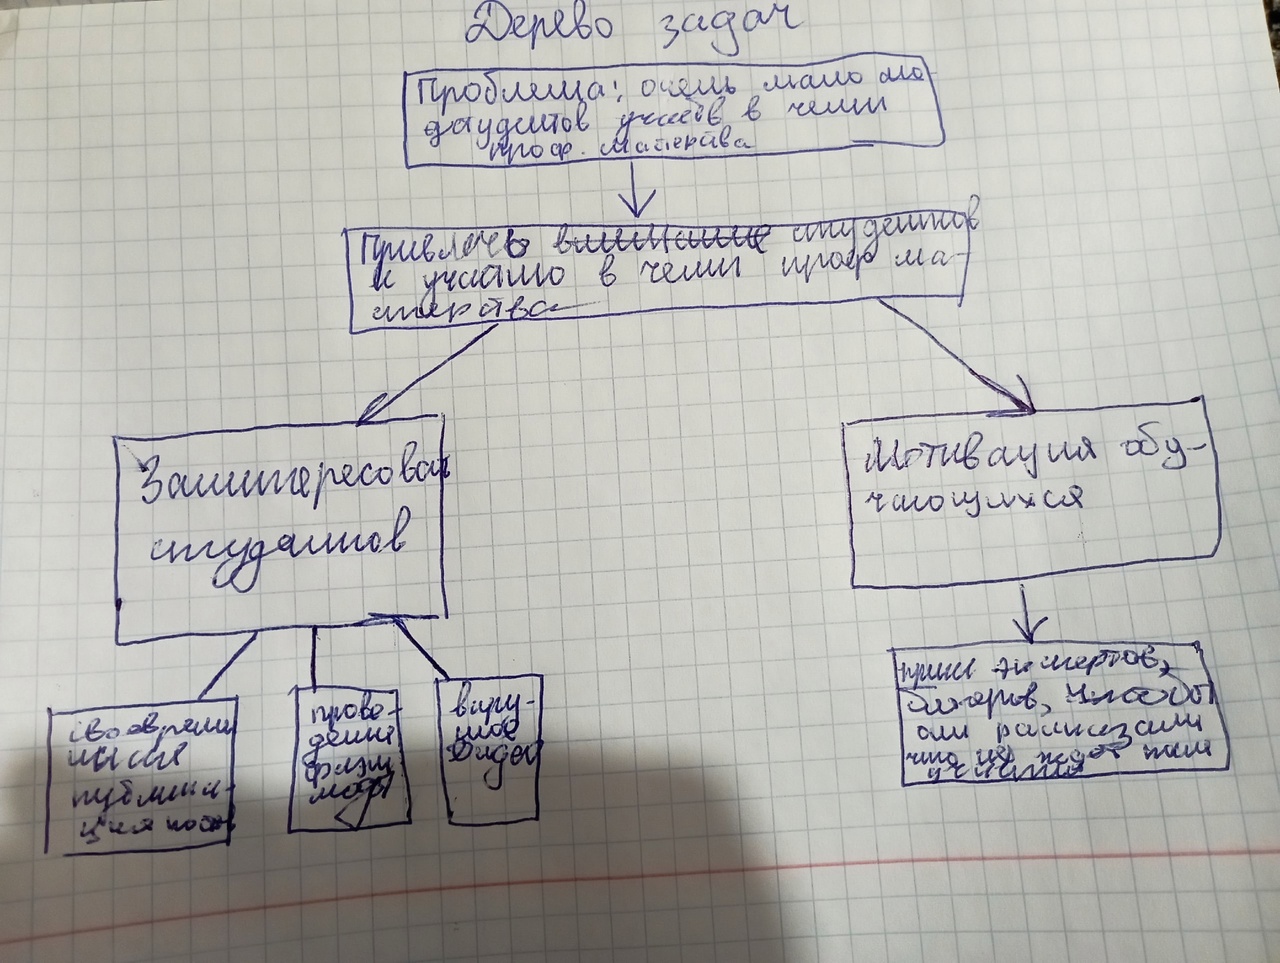 Дерево задач
Проблема: очень мало
студентов участв в чемп
проф. мастерства
Привлечь студентов
к участию в чемп проф ма-
стерства
Заинтересовать
студентов
Мотивация обу-
чающихся
своеврем
публика-
ция пост
прово-
дение
флэш
моба
виру-
сное
видео
приг экспертов,
чтобы
они рассказали
что их ждет после
участия